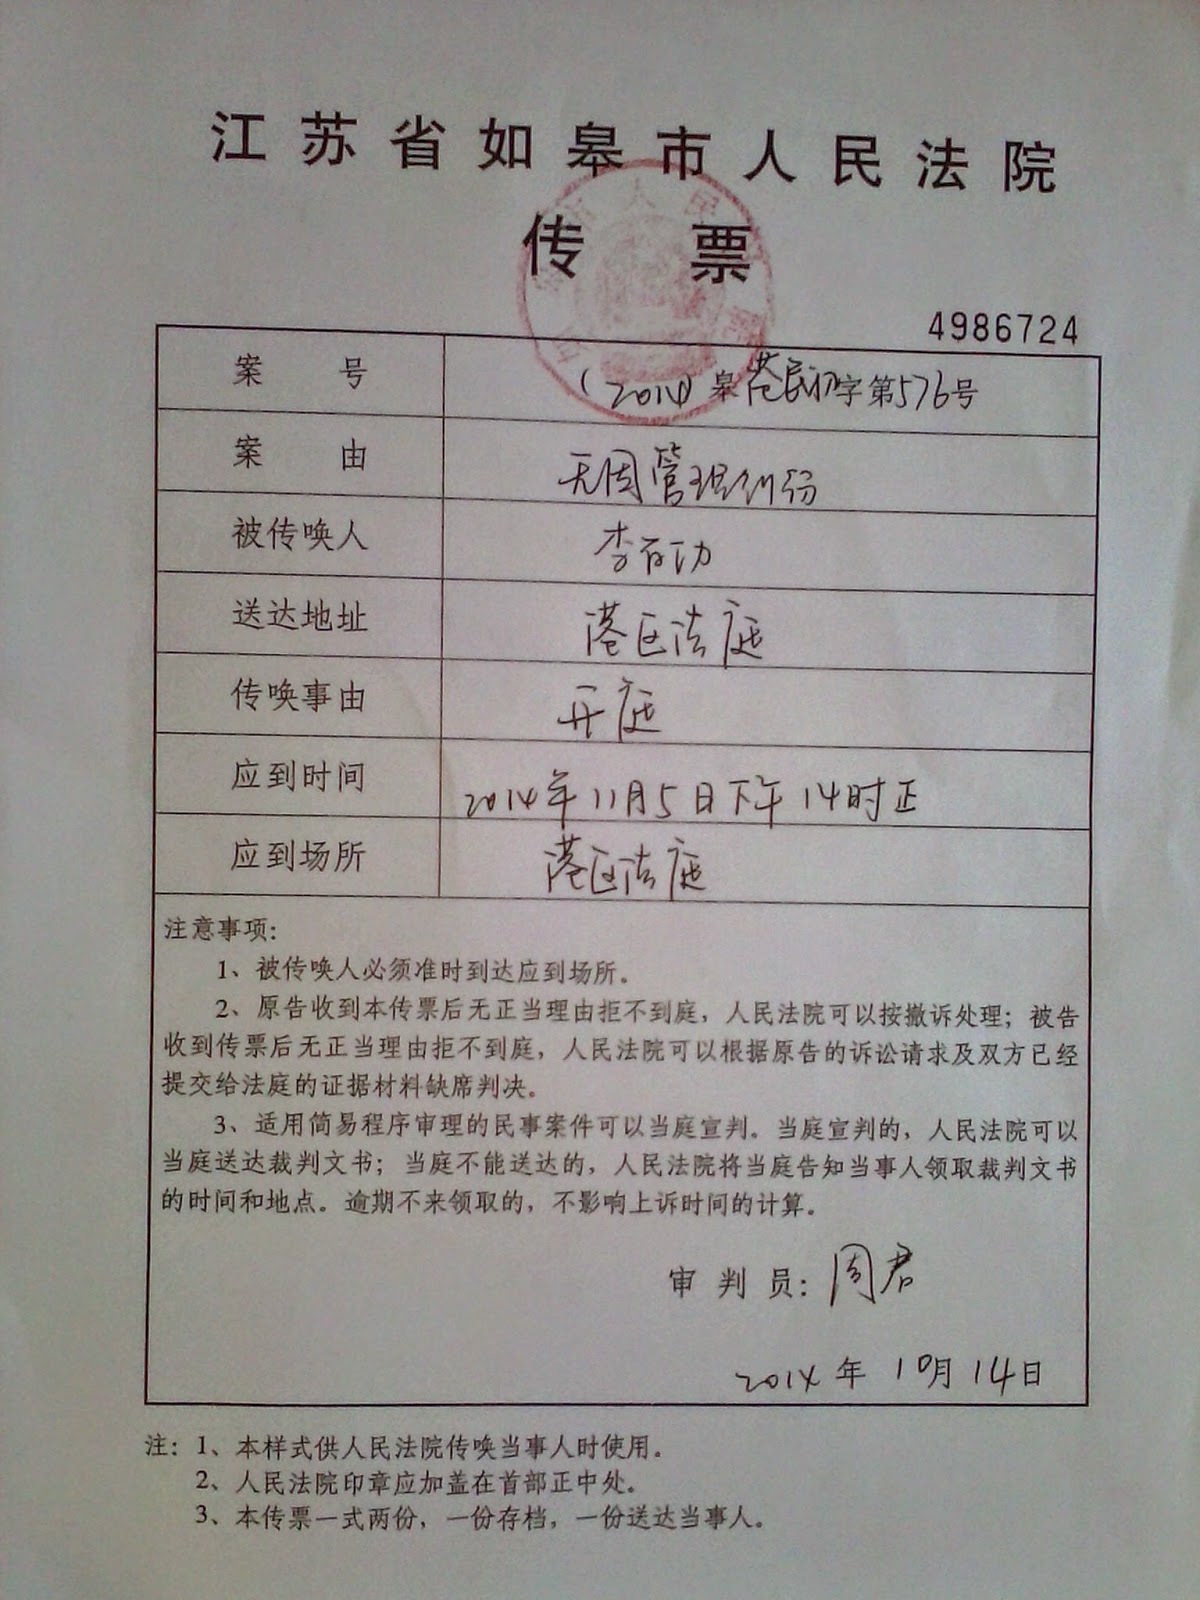 江苏省如皋市人民法院
传 票
4986724
案 号 (2014)皋港民初字第576号
案 由 无因管理纠纷
被传唤人 李百功
送达地址 港区法庭
传唤事由 开庭
应到时间 2014年11月5日下午14时正
应到场所 港区法庭
注意事项:
1、被传唤人必须准时到达应到场所。
2、原告收到本传票后无正当理由拒不到庭，人民法院可以按撤诉处理；被告
收到传票后无正当理由拒不到庭，人民法院可以根据原告的诉讼请求及双方已经
提交给法庭的证据材料缺席判决。
3、适用简易程序审理的民事案件可以当庭宣判。当庭宣判的，人民法院可以
当庭送达裁判文书；当庭不能送达的，人民法院将当庭告知当事人领取裁判文书
的时间和地点。逾期不来领取的，不影响上诉时间的计算。
审 判 员: 周君
2014年10月14日
注: 1、本样式供人民法院传唤当事人时使用。
2、人民法院印章应加盖在首部正中处。
3、本传票一式两份，一份存档，一份送达当事人。